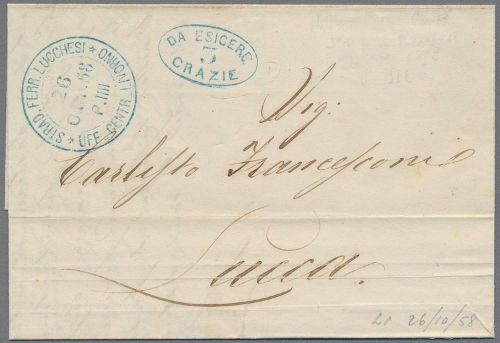 STRAD. FERR. LUCCHESI ★ ONMONTI
UFF. CENTR. ★
26
OTT. 58
P. IIII
DA ESIGERE
3
CRAZIE
Sig:
Carlisto Francesconi
Lucca.
26/10/58